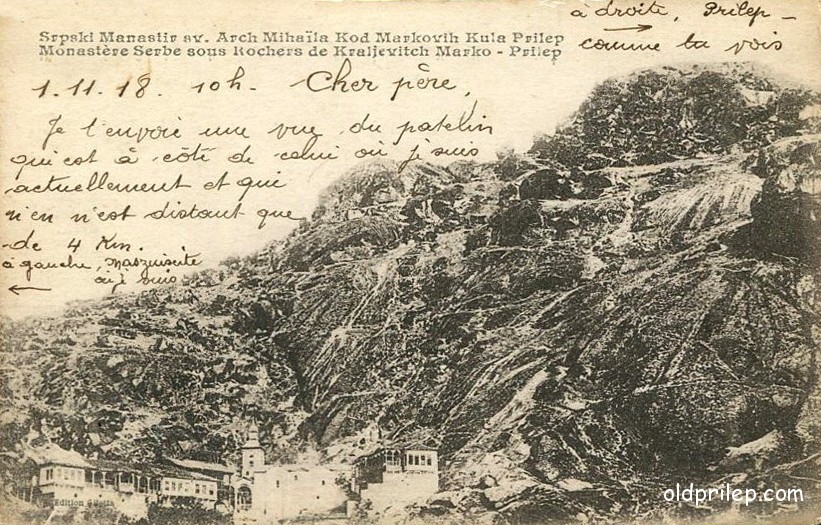 Srpski Manastir sv. Arch Mihaïla Kod Markovih Kula Prilep
Monastère Serbe sous Rochers de Kraljevitch Marko - Prilep
à droite, Prilep -
comme tu vois
1.11.18. 10h. Cher père,
Je t'envoie une vue du patelin
qui est à côté de celui où je suis
actuellement et qui
n'en n'est distant que
de 4 Km.
à gauche,
où je suis
Edition
oldprilep.com